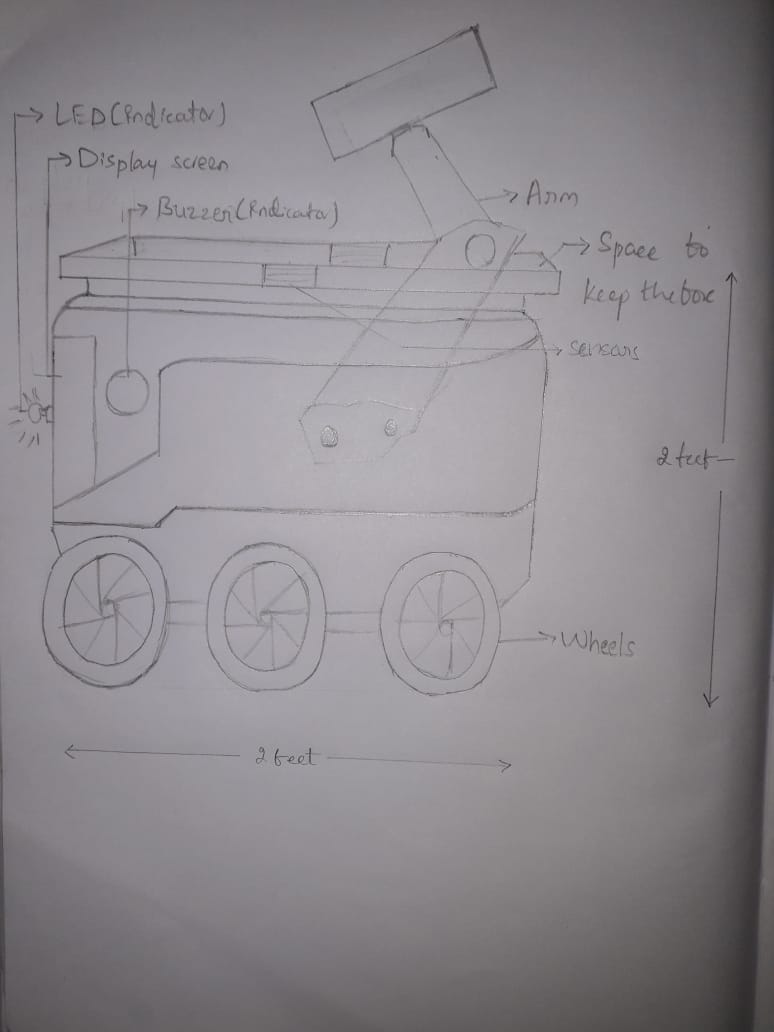 LED (Indicator)
Display screen
Buzzer (Indicator)
Arm
Space to
keep the box
sensars
2 feet
Wheels
2 feet